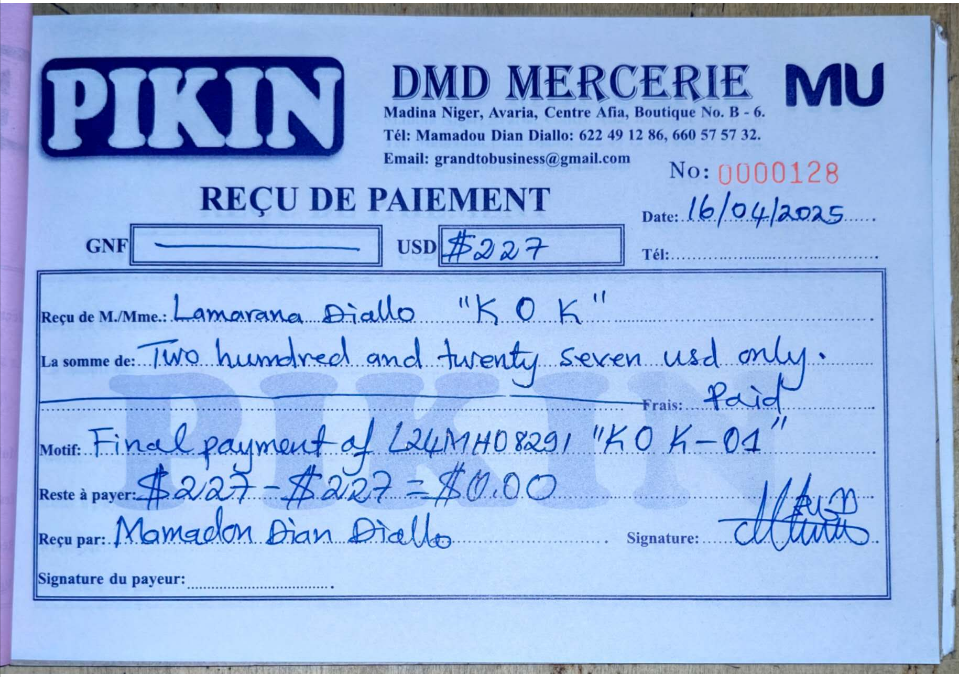 PIKIN
DMD MERCERIE
MU
Madina Niger, Avaria, Centre Afia, Boutique No. B - 6.
Tél: Mamadou Dian Diallo: 622 49 12 86, 660 57 57 32.
Email: grandtobusiness@gmail.com
No: 0000128
REÇU DE PAIEMENT
Date: 16/04/2025
GNF USD $227
Tél:
Reçu de M./Mme.: Lamarana Diallo "K O K"
La somme de: Two humdred and twenty seven usd only.
Frais: Paid
Motif: Final payment of L24MH08291 "K O K-01"
Reste à payer: $227 - $227 = $0.00
Reçu par: Mamadou Dian Diallo Signature:
Signature du payeur:
PIKIN